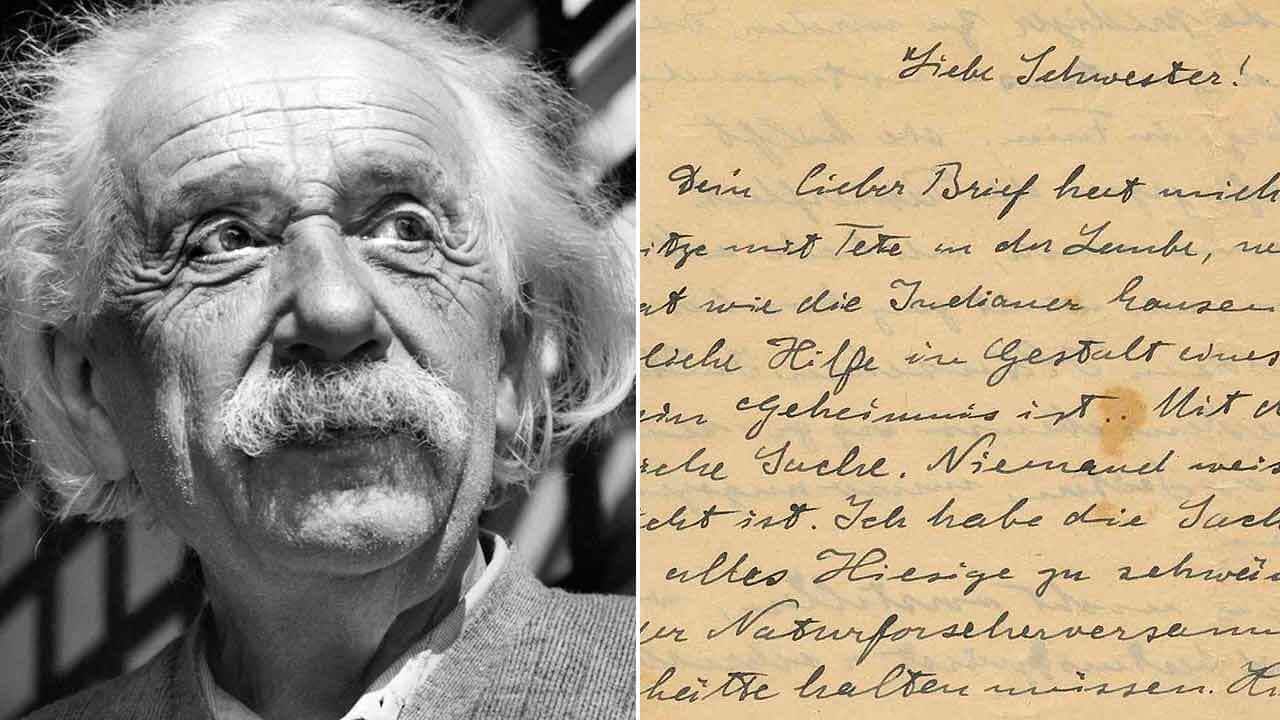 Liebe Schwester!
Dein lieber Brief hat mich
mit Tete in der Laube,
wie die Indianer hausen
Hilfe in Gestalt eines
Geheimnis ist. Mit
Sache. Niemand weis
ist. Ich habe die Sach
alles Hiesige zu
Naturforscherversamm
hätte halten müssen.